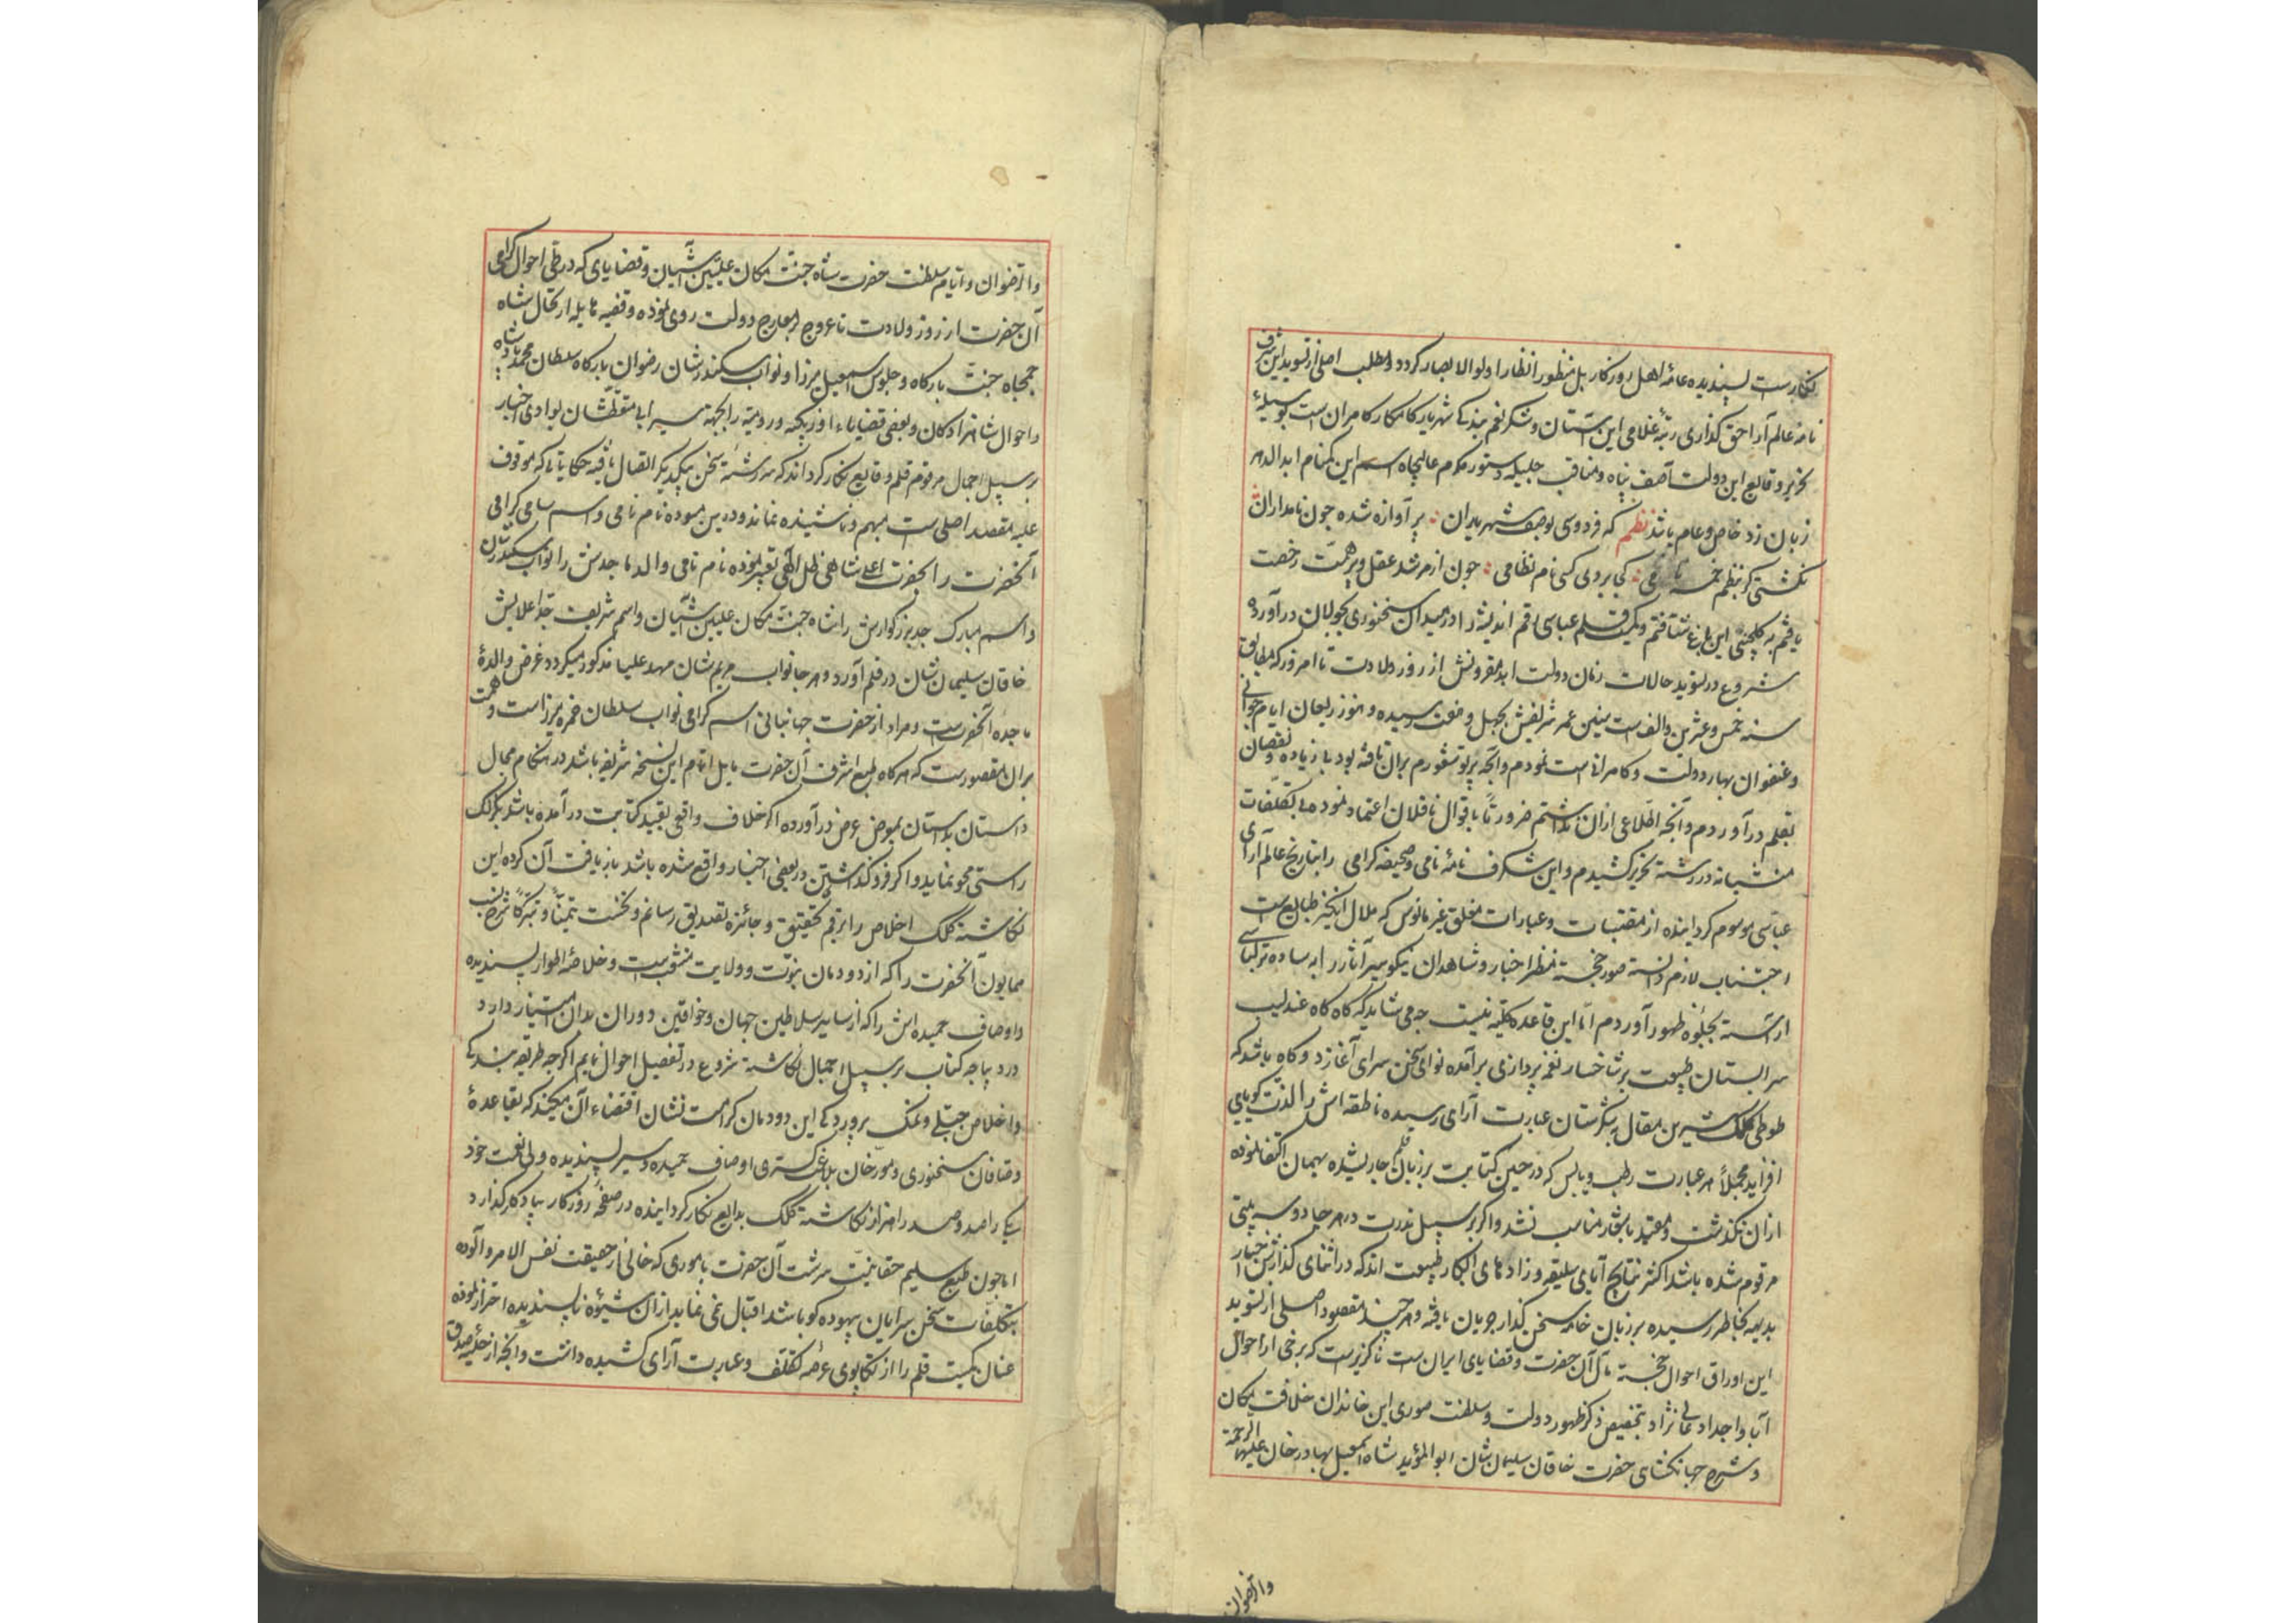 نگارست پسندیده عامهٔ اهل روزکار بل منظور انظار اولوالابصار کردد و مطلب اصلی از تسوید این شرف
نامهٔ عالم آرا حق کذاری رتبهٔ غلامی این آستان و شکر نعم بندکی شهریار کامکار کامران است بوسیلهٔ
تحریر وقایع این دولت آصف پناه و مناقب جلیله دستور مکرم عالیجاه اسم این کمنام ابد الدهر
زبان زد خاص و عام باشد نظم که فردوسی بوصف شهریاران پر آوازه شده چون نامداران
نکشتی کر بنظم خمسه نامی کی بردی کسی نام نظامی چون از مرشد عقل و پیر همت رخصت
یافتم به کلچینی این باغ شتافتم و کمیت قلم عباسی رقم اندیشه را در میدان سخنوری بجولان درآورده
شروع در تسوید حالات زمان دولت ابد مقرونش از روز ولادت تا امروز که مطابق
سنه خمس و عشرین و الف است سنین عمر شریفش بچهل و هفت رسیده و هنوز ریعان ایام جوانی
و عنفوان بهار دولت و کامرانی است نمودم و آنچه پرتو شعورم بران تافته بود بی زیاده و نقصان
بقلم درآوردم و آنچه اطلاعی ازان نداشتم ضرورتاً باقوال ناقلان اعتماد نموده بی تکلفات
منشیانه در رشته تحریر کشیدم و این شکرف نامهٔ نامی و صحیفه کرامی را بتاریخ عالم آرای
عباسی موسوم کردانیده از مقتبسات و عبارات مغلق غیر مانوس که ملال انکیز طبایع است
اجتناب لازم دانسته صور خجسته منظر اخبار و شاهدان نیکو سیر آثار را به ساده ترکباسی
آراسته بجلوه ظهور آوردم اما این قاعده کلیه نیست چه می شاید که کاه کاه عندلیب
سرابستان طبیعت بر شاخسار نغمه پردازی برآمده نوای سخن سرای آغازد و کاه باشد که
طوطی کلک شیرین مقال بشکرستان عبارت آرای رسیده ناطقه اش را لذت کویایی
افزاید مجملاً هر عبارت رطب و یابس که در حین کتابت بر زبان قلم جاری شده بهمان اکتفا نموده
ازان نکذشت و مقید باشعار مناسب نشد و اکر بر سبیل ندرت در هر جا دو سه بیتی
مرقوم شده باشد اکثر نتایج آبای سلیقه و زادهای ابکار طبیعت اند که در اثنای کذارش اخبار
بدیهه بخاطر رسیده بر زبان خامه سخن کذار جریان یافته و هر چند مقصود اصلی از تسوید
این اوراق احوال خجسته مآل آن حضرت و قضایای ایران است ناکزیر است که برخی از احوال
آبا و اجداد عالی نژاد بتخصیص ذکر ظهور دولت و سلطنت صوری این خاندان خلافت مکان
و شرح جهانکشای حضرت خاقان سلیمان شان ابوالمؤید شاه اسمعیل بهادر خان علیها الرحمة
والرضوان
والرضوان و ایام سلطنت حضرت شاه جنت مکان علیین آشیان و قضایای که در طی احوال کرامی
آن حضرت از روز ولادت تا عروج بمعارج دولت روی نموده و قضیه هایله ارتحال شاه
جمجاه جنت بارکاه و جلوس اسمعیل میرزا و نواب سکندر شان رضوان بارکاه سلطان محمد پادشاه
و احوال شاهزادکان و بعضی قضایاء اوزبکیه و رومیه را بجهة سیرابی متعطشان بوادی اخبار
بر سبیل اجمال مرقوم قلم وقایع نکار کرداند که سر رشته سخن بیکدیکر اتصال یافته حکایاتی که موقوف
علیه مقصد اصلی ست مبهم و ناشنیده نماند و درین مسوده نام نامی و اسم سامی کرامی
آنحضرت را بحضرت اعلی شاهی ظل الهی تعبیر نموده نام نامی والد ماجدش را نواب سکندر شان
و اسم مبارک جد بزرکوارش را شاه جنت مکان علیین آشیان و اسم شریف جد اعلایش
خاقان سلیمان شان در قلم آورد و هر جا نواب مریم شان مهد علیا مذکور میکردد غرض والدهٔ
ماجده آنحضرتست و مراد از حضرت جهانبانی اسم کرامی نواب سلطان حمزه میرزاست و همت
بران مقصورست که هر کاه طبع اشرف آن حضرت مایل اتمام این نسخه شریفه باشد در هنکام مجال
داستان بداستان بموقف عرض درآورده اکر خلاف واقعی بقید کتابت درآمده باشد بکزلک
راستی محو نماید و اکر فروکذاشتی در بعضی اخبار واقع شده باشد باز یافت آن کرده این
نکاشته کلک اخلاص را برقم تحقیق و جائزه تصدیق رسانم و نخست تیمناً و تبرکاً شرح نسب
همایون آنحضرت را که از دودمان نبوت و ولایت منشعب است و خلاصه اطوار پسندیده
و اوصاف حمیده اش را که از سایر سلاطین جهان و خواقین دوران بدان امتیاز دارد
در دیباجه کتاب بر سبیل اجمال نکاشته شروع در تفصیل احوال نمایم اکر چه طریقه بندکی
و اخلاص جبلی و نمک پروردکی این دودمان کرامت نشان اقتضاء آن میکند که بقاعدهٔ
وصافان سخنوری و مورخان بلاغت کستری اوصاف حمیده و سیر پسندیده ولی نعمت خود
یکی را صد و صد را هزار نکاشته کلک بدایع نکار کردانیده در صفحه روزکار بیادکار کذارد
اما چون طبع سلیم حقانیت سرشت آن حضرت باموری که خالی از حقیقت نفس الامر و آلوده
بتکلفات سخن سرایان بیهوده کو باشد اقبال نمی نماید ازان شیوه ناپسندیده احتراز نموده
عنان کمیت قلم را از تکاپوی عرصه تکلف و عبارت آرای کشیده داشت و آنچه از حلیه صدق